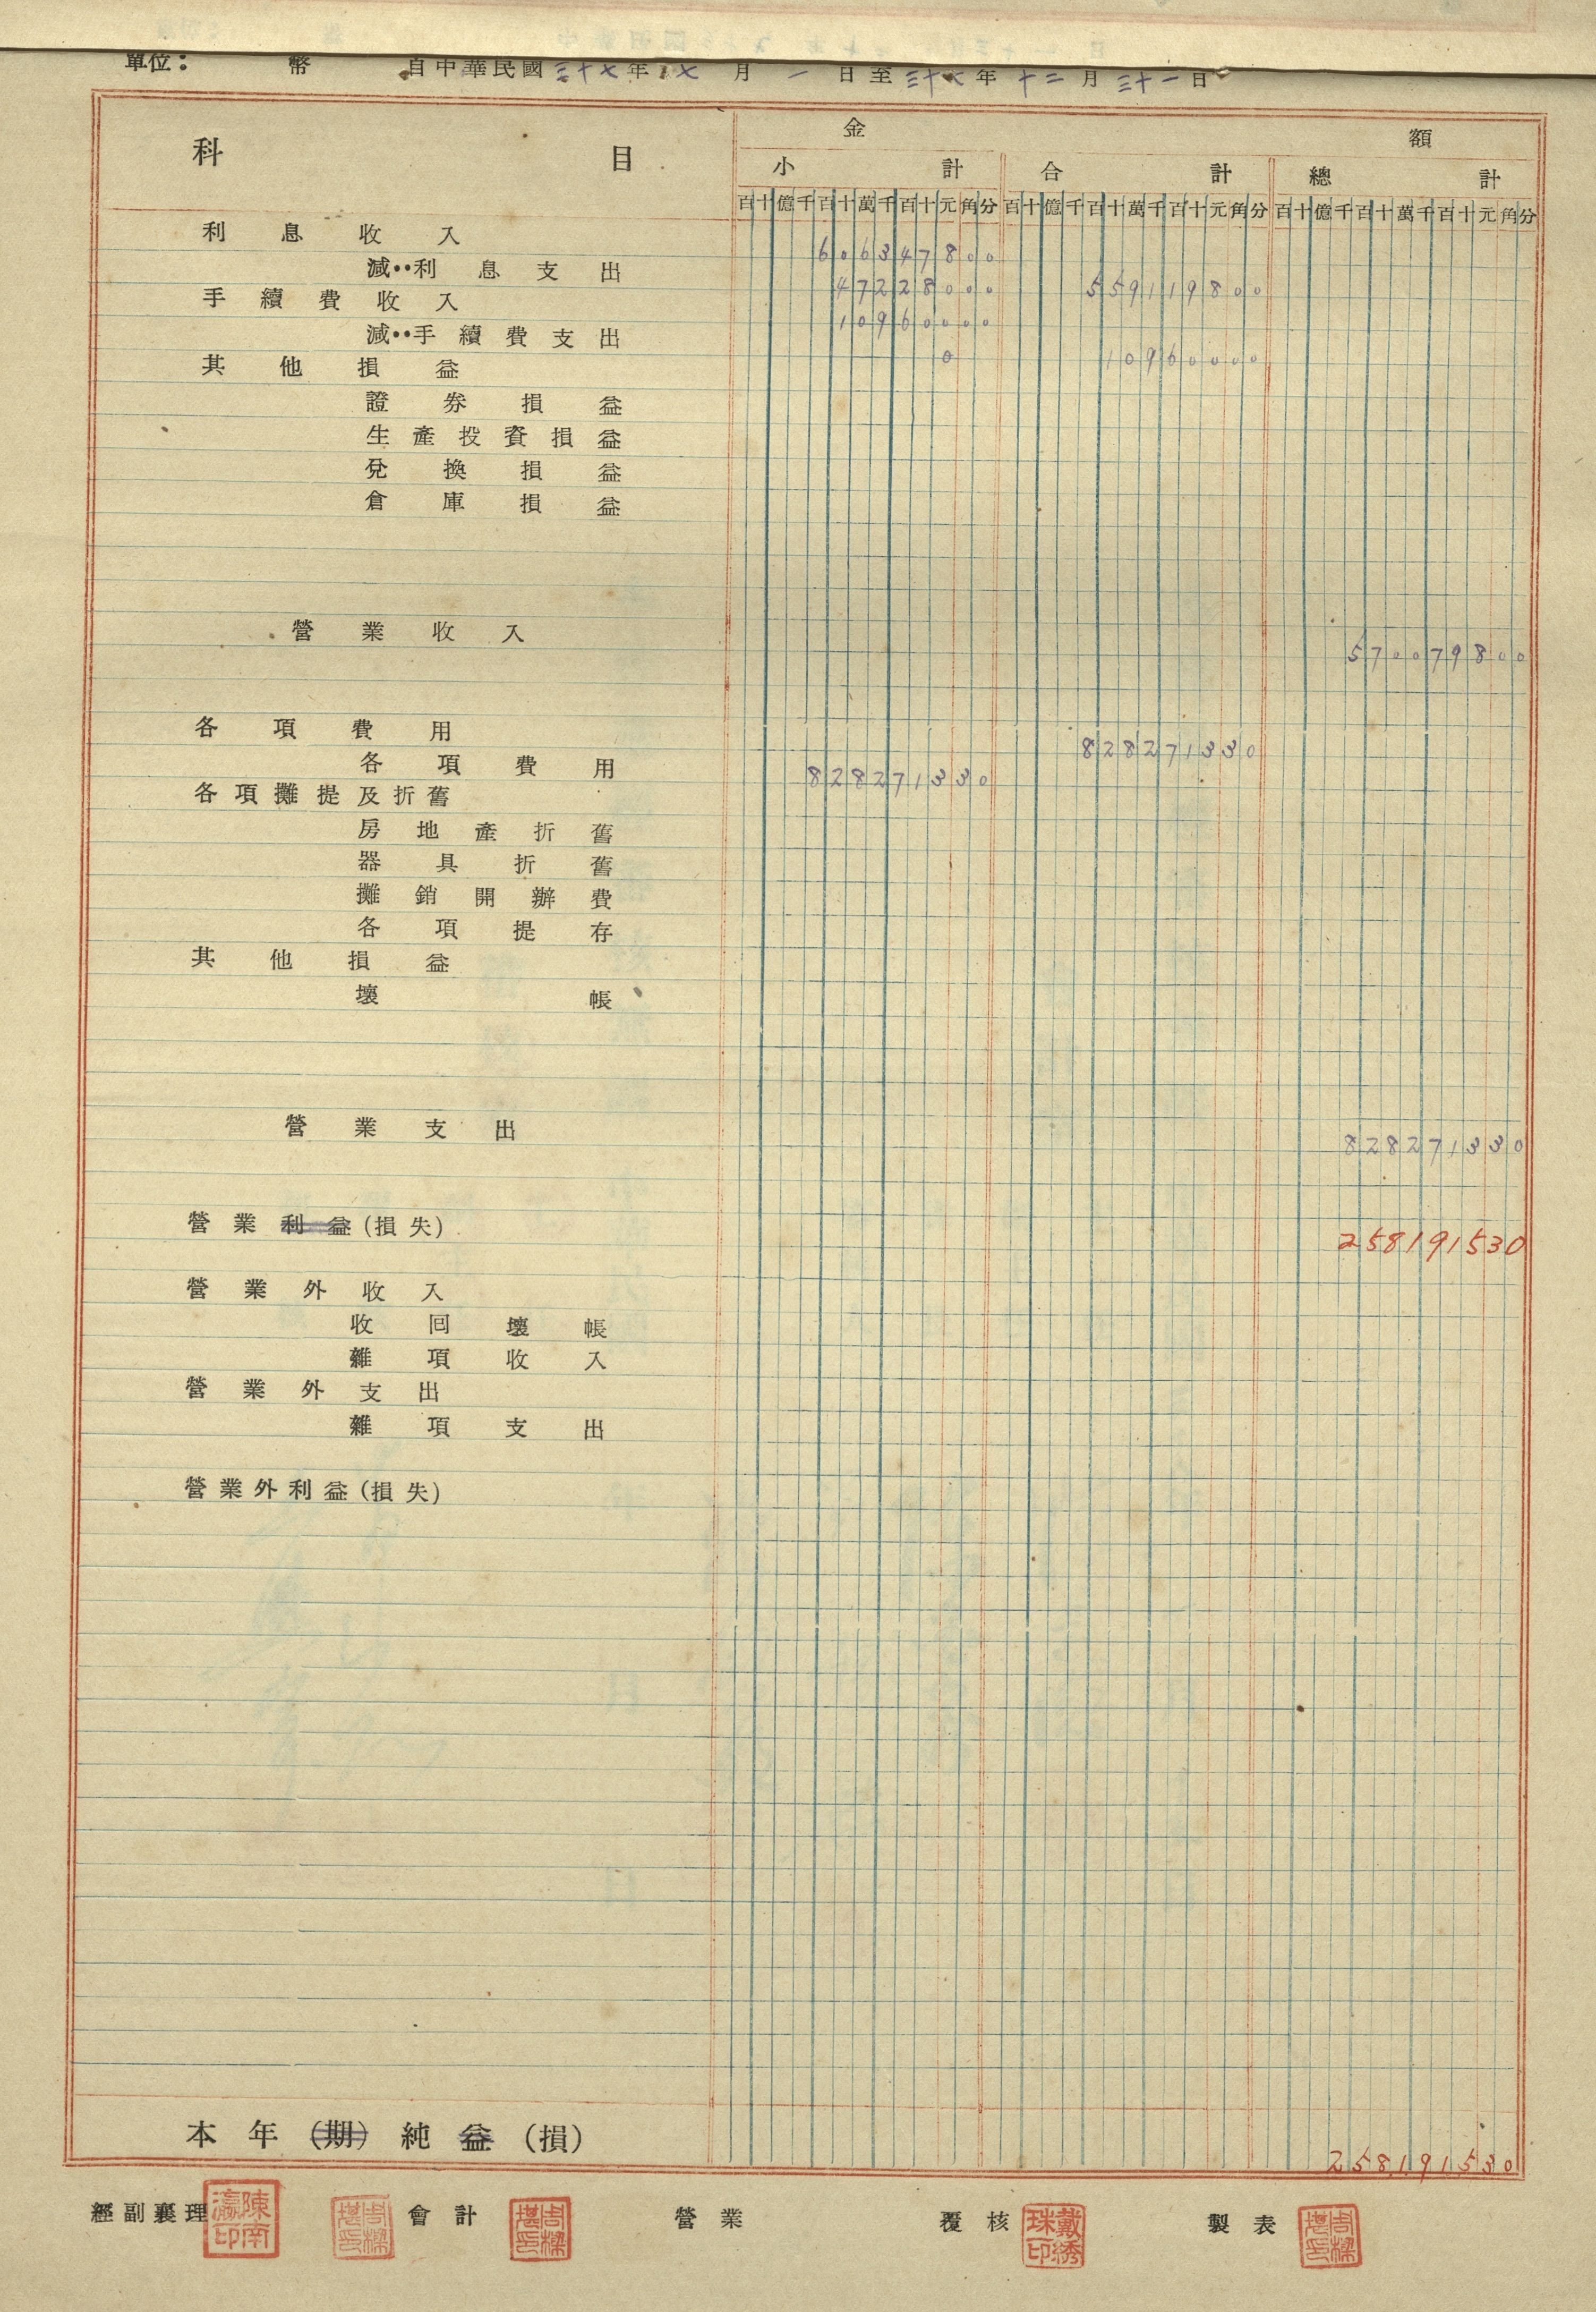 單位：　幣　自中華民國三十七年七月一日至三十七年十二月三十一日
科目　金額
小計　合計　總計
百十億千百十萬千百十元角分　百十億千百十萬千百十元角分　百十億千百十萬千百十元角分
利息收入　606347800
減：利息支出　47228000　559119800
手續費收入　10960000
減：手續費支出　0　10960000
其他損益
證券損益
生產投資損益
兌換損益
倉庫損益
營業收入　570079800
各項費用　828271330
各項費用　828271330
各項攤提及折舊
房地產折舊
器具折舊
攤銷開辦費
各項提存
其他損益
壞帳
營業支出　828271330
營業利益(損失)　258191530
營業外收入
收回壞帳
雜項收入
營業外支出
雜項支出
營業外利益(損失)
本年(期)純益(損)　258191530
經副襄理　陳南瀛印　周樑堪印　會計　周樑堪印　營業　覆核　戴綉珠印　製表　周樑堪印